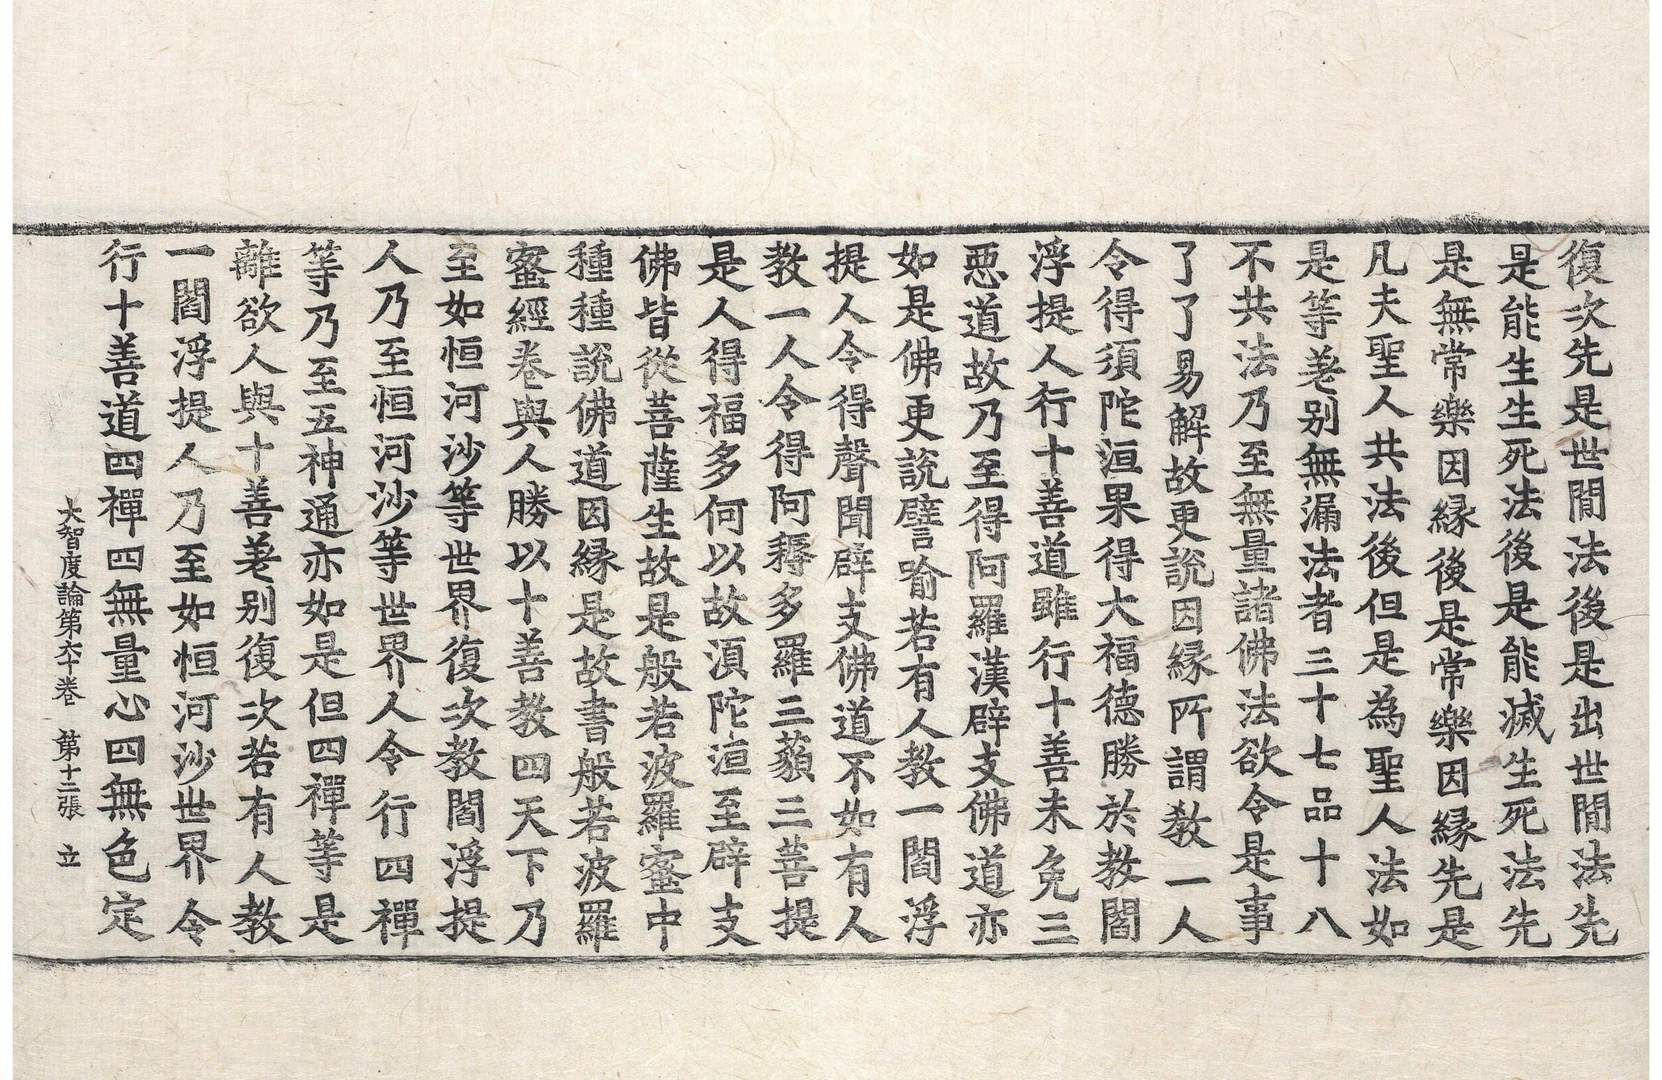 復次先是世閒法後是出世閒法先
是能生生死法後是能滅生死法先
是無常樂因縁後是常樂因縁先是
凡夫聖人共法後但是為聖人法如
是等差别無漏法者三十七品十八
不共法乃至無量諸佛法欲令是事
了了易解故更說因縁所謂教一人
令得湏陀洹果得大福德勝於教閻
浮提人行十善道雖行十善未免三
惡道故乃至得阿羅漢辟支佛道亦
如是佛更說譬喻若有人教一閻浮
提人令得聲聞辟支佛道不如有人
教一人令得阿耨多羅三藐三菩提
是人得福多何以故湏陀洹至辟支
佛皆從菩薩生故是般若波羅蜜中
種種說佛道因縁是故書般若波羅
蜜經卷與人勝以十善教四天下乃
至如恒河沙等世界復次教閻浮提
人乃至恒河沙等世界人令行四禪
等乃至五神通亦如是但四禪等是
離欲人與十善差别復次若有人教
一閻浮提人乃至如恒河沙世界令
行十善道四禪四無量心四無色定
大智度論第六十卷　第十二張　立